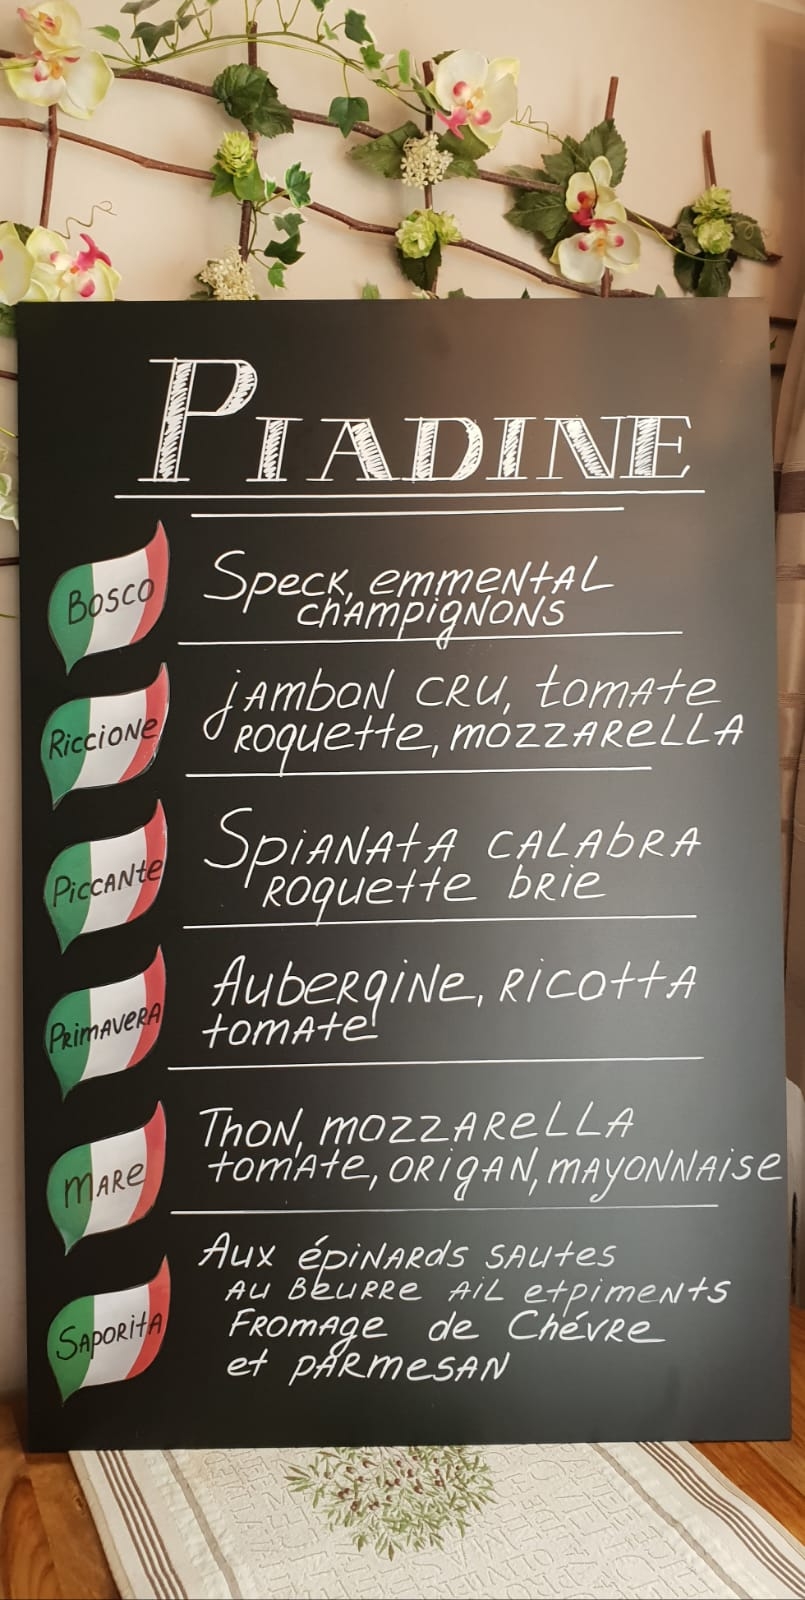 PIADINE
BOSCO
Speck, emmental
champignons
Riccione
jambon cru, tomate
roquette, mozzarella
Piccante
Spianata calabra
roquette brie
Primavera
Aubergine, ricotta
tomate
Mare
Thon, mozzarella
tomate, origan, mayonnaise
Saporita
Aux épinards sautes
au beurre ail et piments
Fromage de Chévre
et parmesan